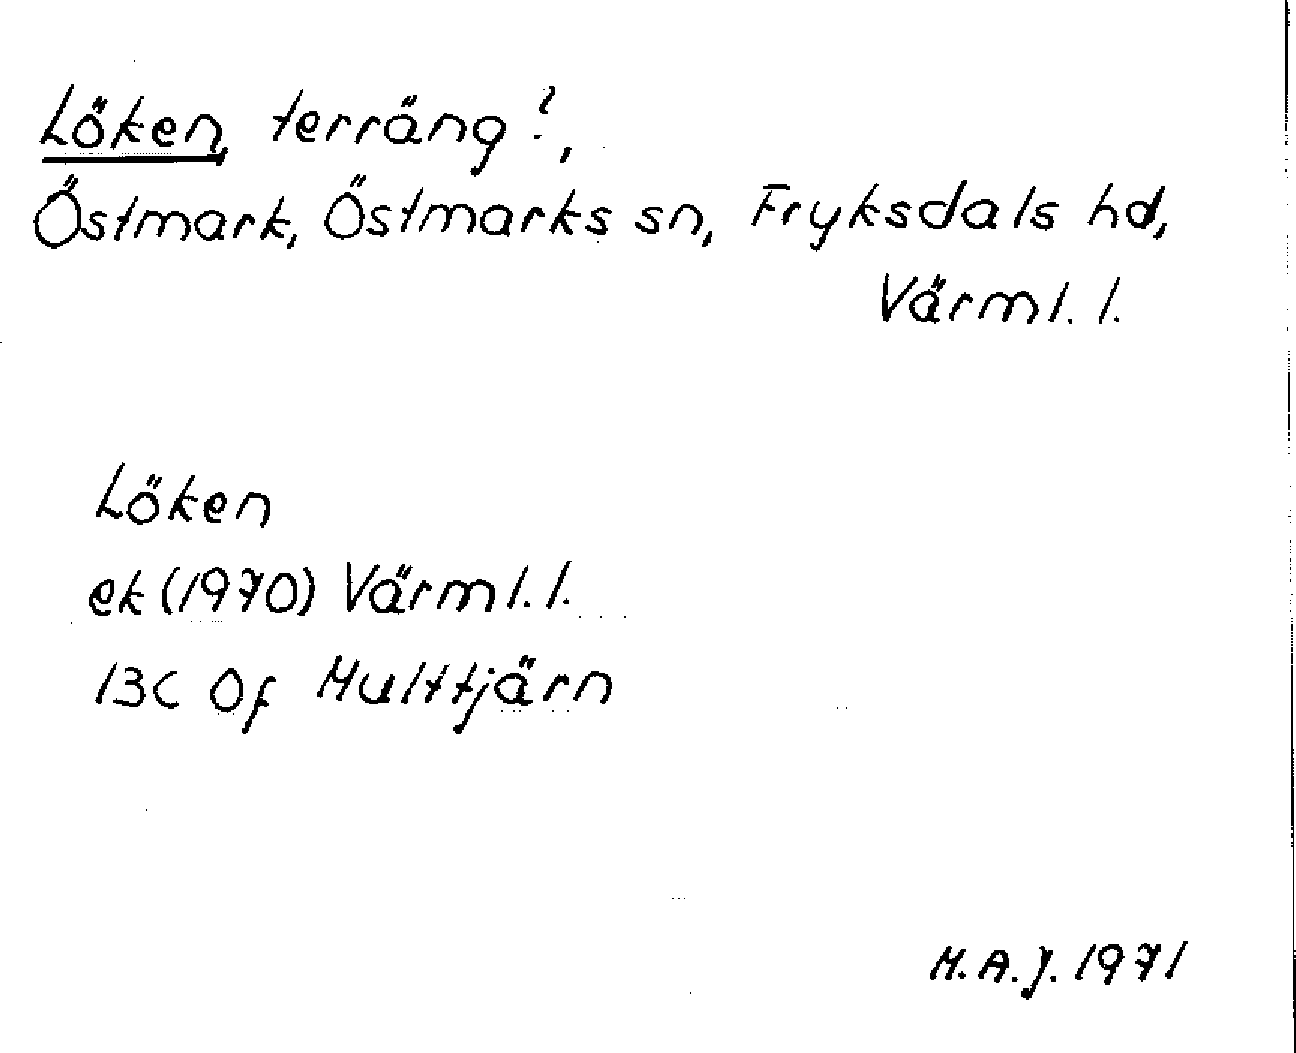 Löken, terräng?,
Östmark, Östmarks sn, Fryksdals hd,
Värml. l.
Löken
ek (1970) Värml. l.
13C 0f Multtjärn
M.A.J. 1971